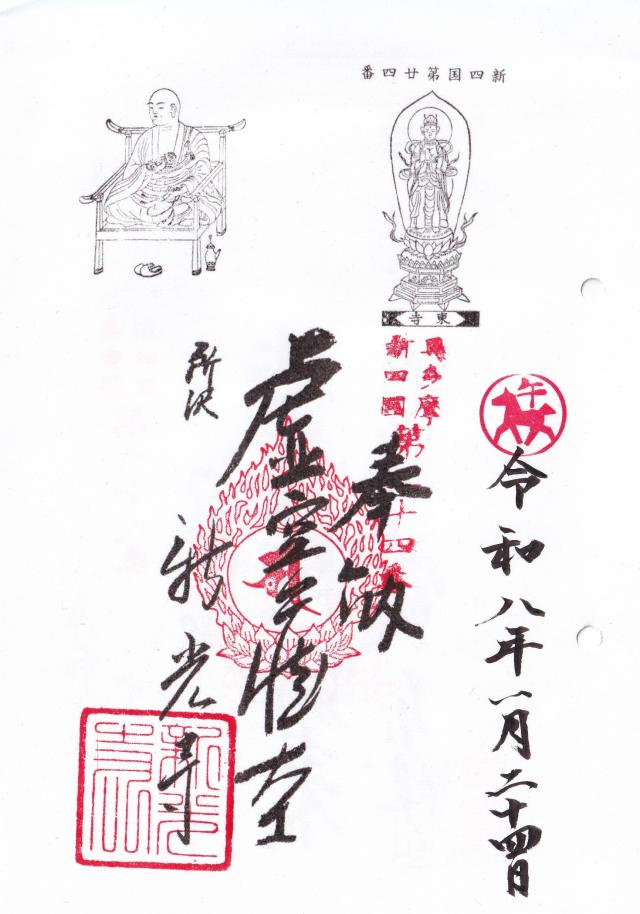 新四国第廿四番
東寺
午
令和八年一月二十四日
奥多摩
新四國
第二十四番
奉納
虚空蔵堂
所沢
新光寺